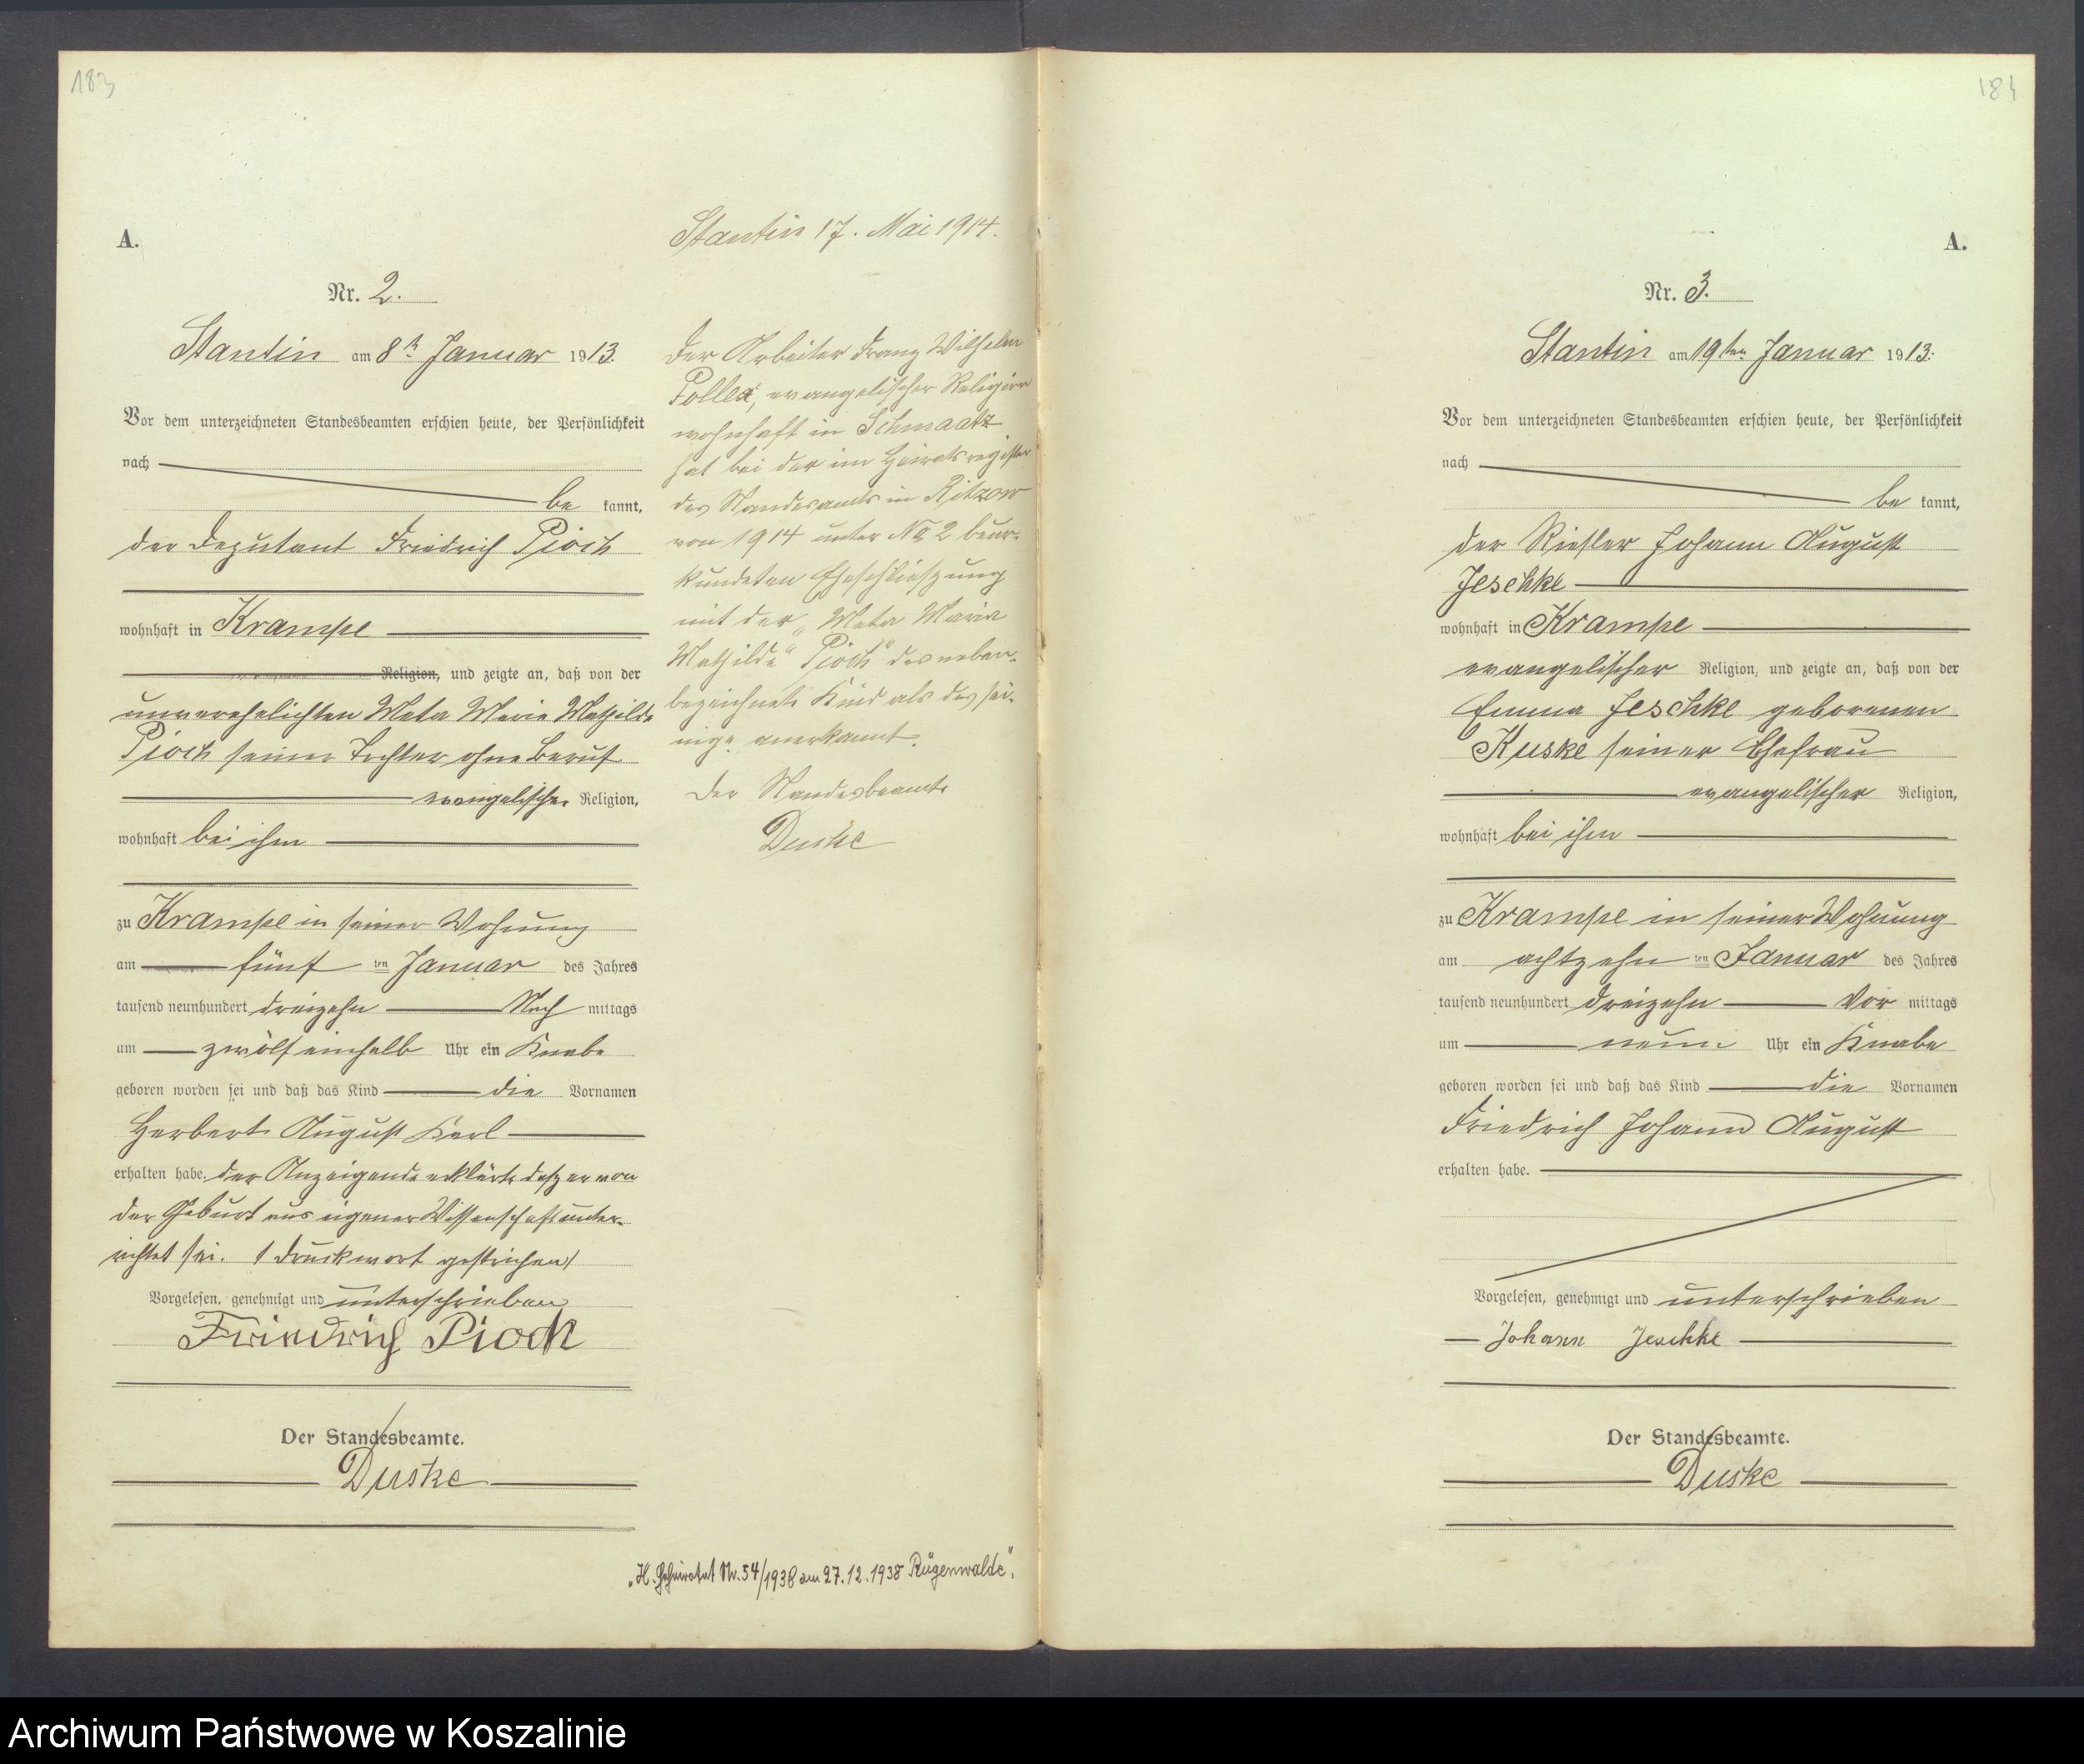 183
A.
Nr. 2.
Stantin am 8ten Januar 1913.
Vor dem unterzeichneten Standesbeamten erschien heute, der Persönlichkeit
nach
be kannt,
der Deputant Friedrich Pioch
wohnhaft in Krampe
Religion, und zeigte an, daß von der
unverehelichten Meta Maria Mathilde
Pioch seiner Tochter ohne Beruf
evangelischer Religion,
wohnhaft bei ihm
zu Krampe in seiner Wohnung
am fünf ten Januar des Jahres
tausend neunhundert dreizehn Nach mittags
um zwölf einhalb Uhr ein Knabe
geboren worden sei und daß das Kind die Vornamen
Herbert August Karl
erhalten habe. Der Anzeigende erklärte daß er von
der Geburt aus eigener Wissenschaft unter-
richtet sei. 1 Druckwort gestrichen/
Vorgelesen, genehmigt und unterschrieben
Friedrich Pioch
Der Standesbeamte.
Duske
Stantin 17. Mai 1914.
Der Arbeiter Franz Wilhelm
Pollex, evangelischer Religion
wohnhaft in Schmaatz
hat bei der im Heiratsregister
des Standesamts in Ritzow
von 1914 unter No 2 beur-
kundeten Eheschließung
mit der „Meta Maria
Mathilde" Pioch" das neben-
bezeichnete Kind als das sei-
nige anerkannt.
Der Standesbeamte
Duske
„H. Geheiratet Nr. 54/1938 am 27.12.1938 Rügenwalde".
184
A.
Nr. 3.
Stantin am 19ten Januar 1913.
Vor dem unterzeichneten Standesbeamten erschien heute, der Persönlichkeit
nach
be kannt,
der Riesler Johann August
Jeschke
wohnhaft in Krampe
evangelischer Religion, und zeigte an, daß von der
Emma Jeschke geborenen
Kuske seiner Ehefrau
evangelischer Religion,
wohnhaft bei ihm
zu Krampe in seiner Wohnung
am achtzehn ten Januar des Jahres
tausend neunhundert dreizehn Vor mittags
um neun Uhr ein Knabe
geboren worden sei und daß das Kind die Vornamen
Friedrich Johann August
erhalten habe.
Vorgelesen, genehmigt und unterschrieben
Johann Jeschke
Der Standesbeamte.
Duske
Archiwum Państwowe w Koszalinie